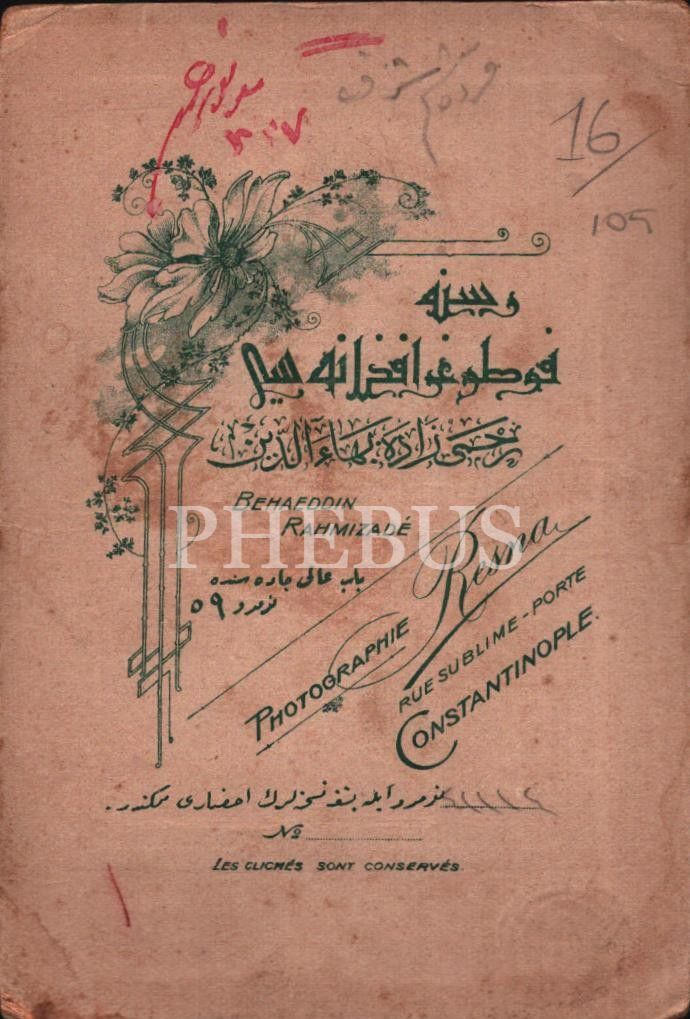 16
105
رسنه
فوطوغرافخانه سی
رحمی زاده بهاءالدین
BEHAEDDIN
RAHMIZADÉ
PHEBUS
باب عالی جاده سنده
نومرو ٥٩
PHOTOGRAPHIE Resna
RUE SUBLIME-PORTE
CONSTANTINOPLE.
نومرو ایله یتفر نسخه لرك احضاری ممكندر.
No
LES CLICHÉS SONT CONSERVÉS.